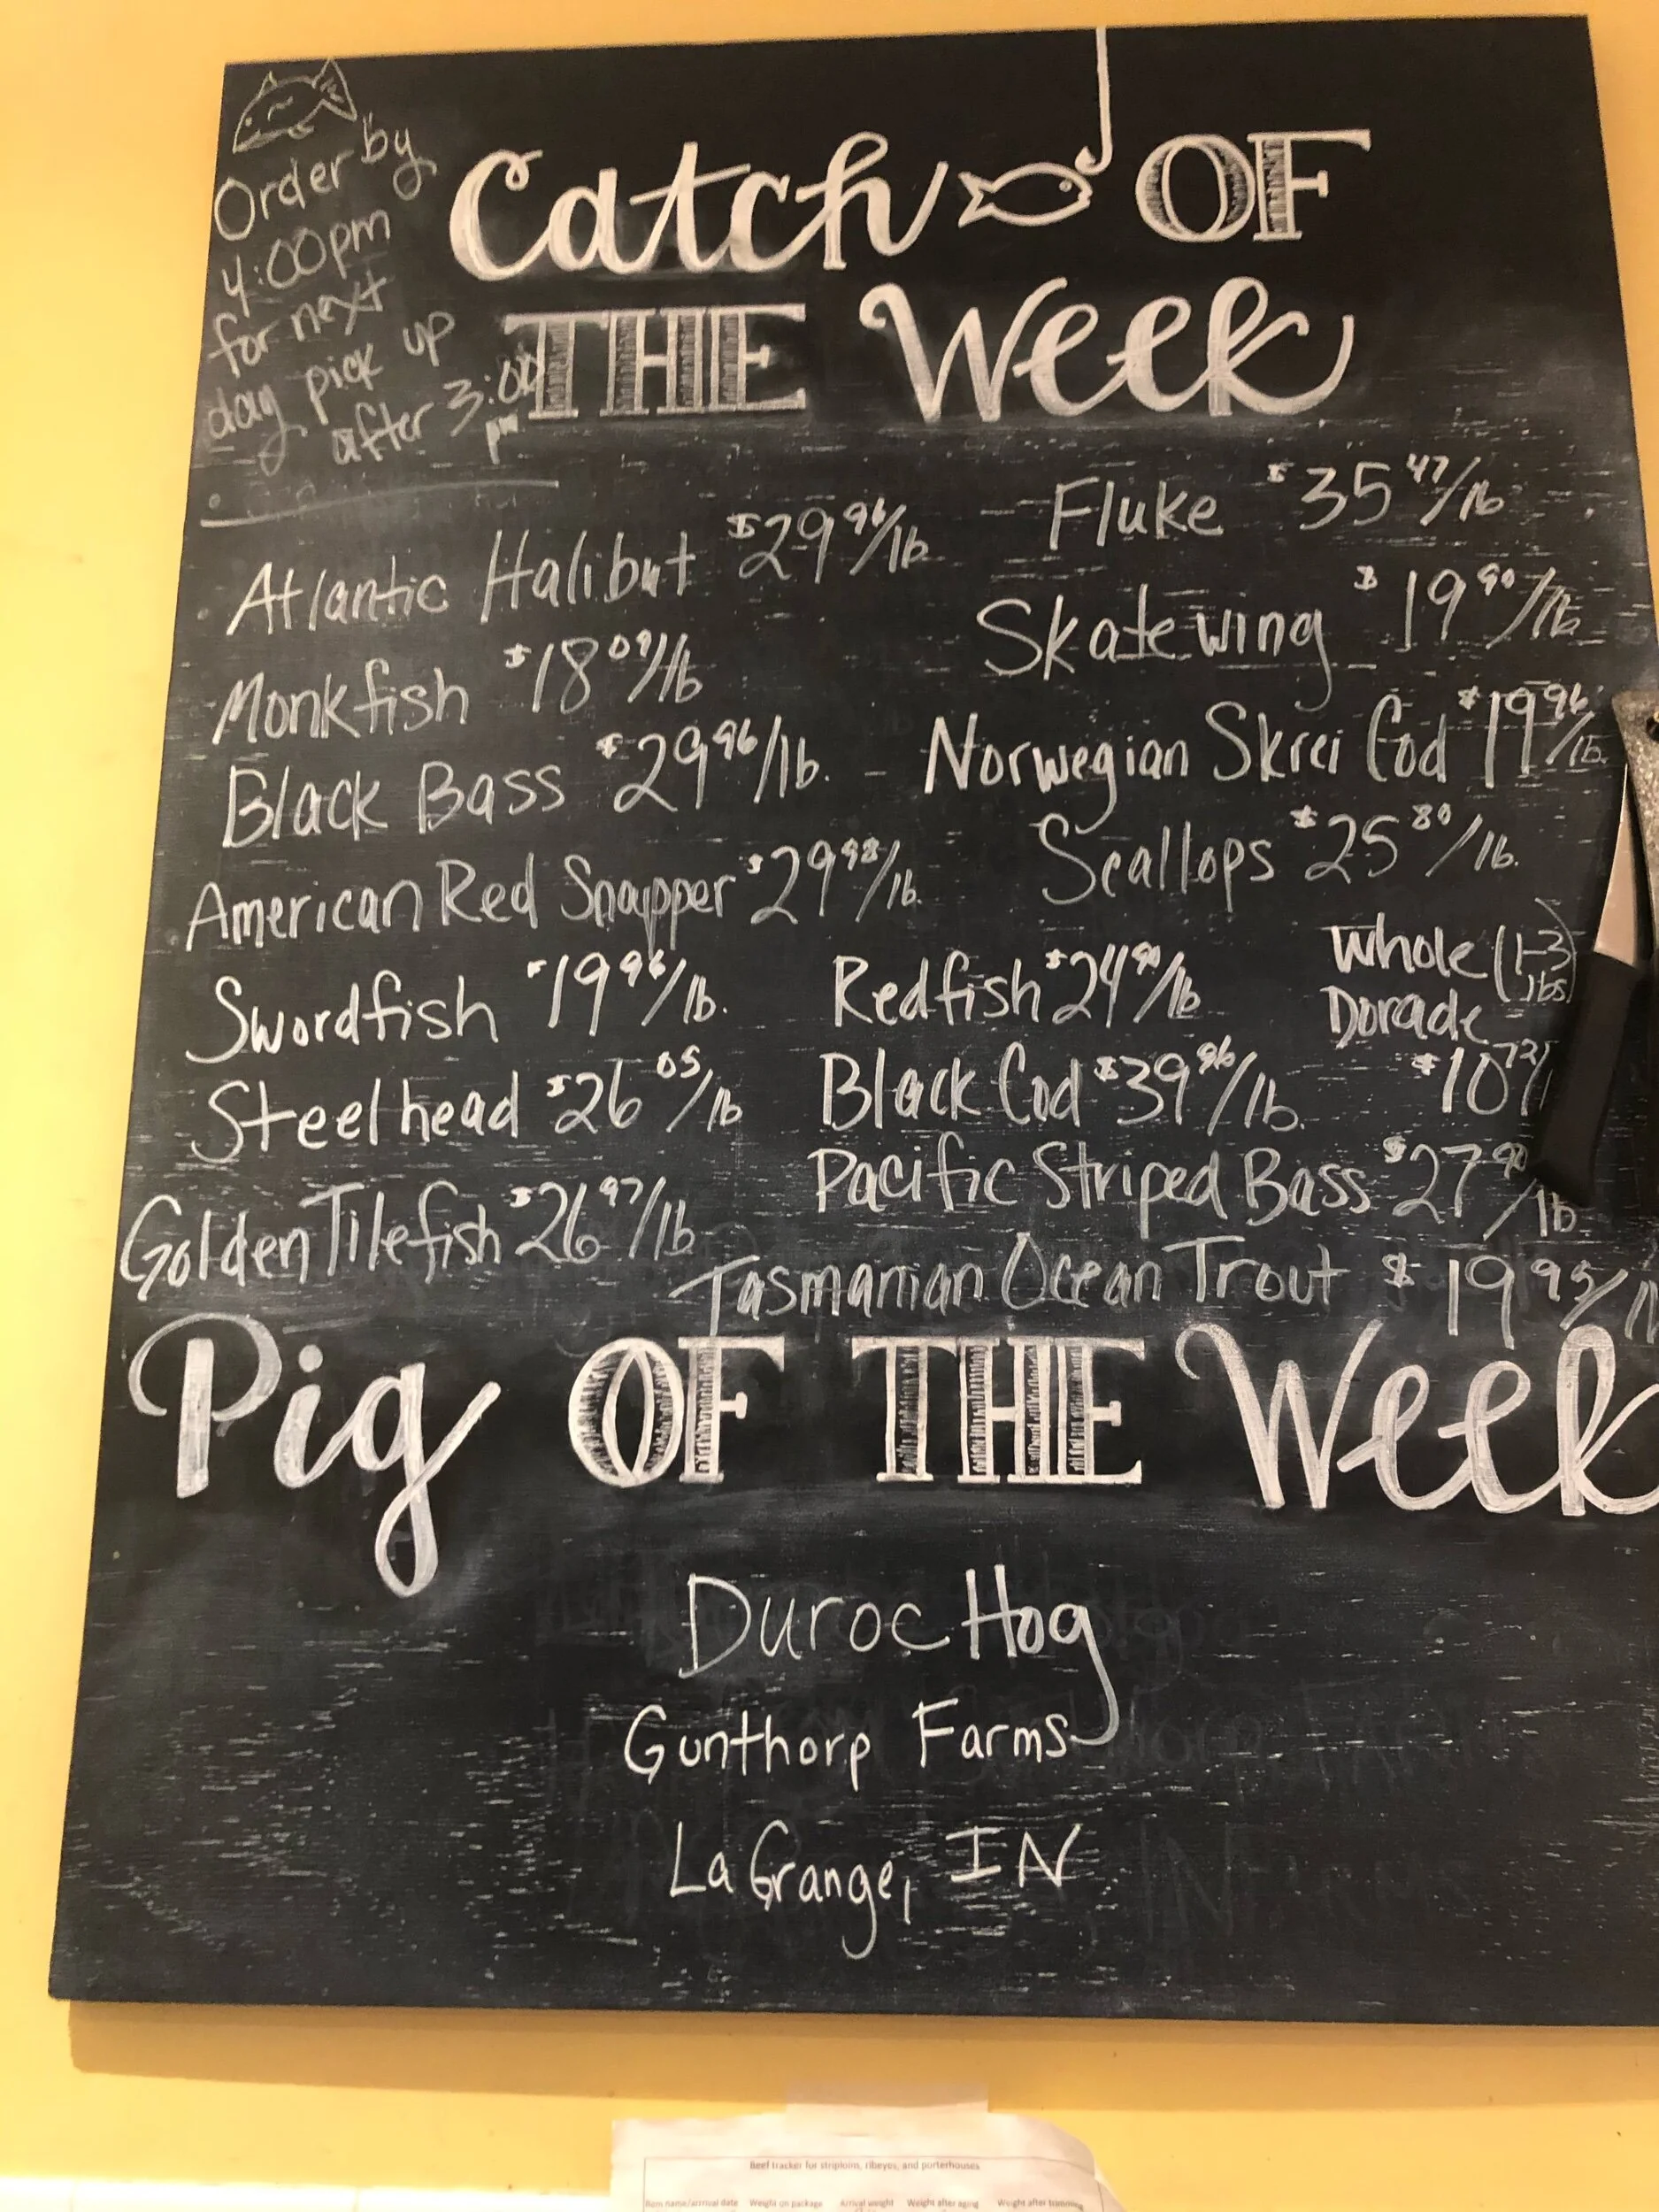 Order by
4:00pm
for next
day pick up
after 3:00
pm
Catch OF
THE Week
Atlantic Halibut $29 96/lb
Monkfish $18 09/lb
Black Bass $29 96/lb.
American Red Snapper $29 98/lb.
Swordfish $19 96/lb.
Steelhead $26 05/lb
Golden Tilefish $26 97/lb
Fluke $35 47/lb
Skate wing $19 90/lb
Norwegian Skrei Cod $19 96/lb.
Scallops $25 80/lb.
Redfish $24 90/lb
Black Cod $39 96/lb.
Whole (1-3
lbs)
Dorade
$10 72/
Pacific Striped Bass $27 90/lb
Tasmanian Ocean Trout $19 95/
Pig OF THE Week
Duroc Hog
Gunthorp Farms
LaGrange, IN
Beef tracker for striploins, ribeyes, and porterhouses
Item name/arrival date Weight on package Arrival weight Weight after aging Weight after trimming